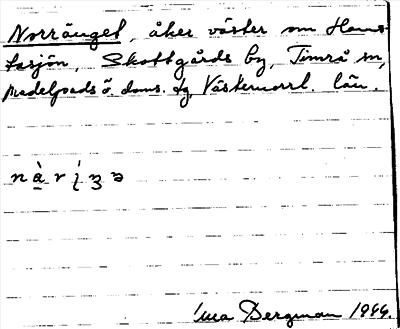 Norränget, åker väster om Hams-
tasjön, Skottgårds by, Timrå sn,
Medelpads ö. doms. tg Västernorrl. län.
n à r i ʒ ə
Bergman 1944.